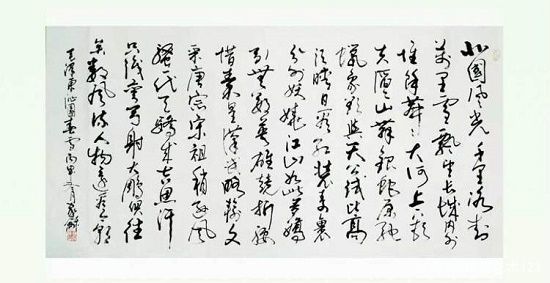 北國风光千里冰封
万里雪飘望长城内外
惟余莽々大河上下顿
失滔滔山舞银蛇原驰
蜡象欲与天公试比高
须晴日看红装素裹
分外妖娆江山如此多娇
引无数英雄竞折腰
惜秦皇汉武略输文
采唐宗宋祖稍逊风
骚一代天骄成吉思汗
只识弯弓射大雕俱往
矣数风流人物还看今朝
毛泽东沁园春雪丙申